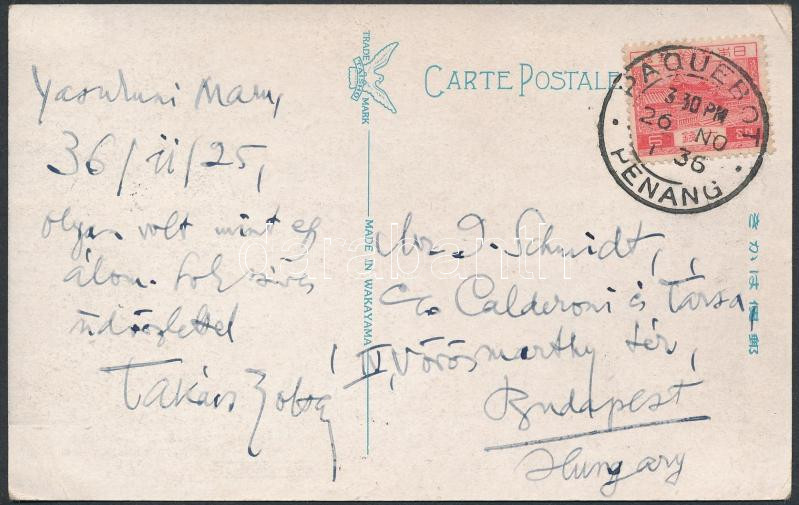 Yasukuni Maru,
36/11/25,
olyan volt mint egy
álom. Sok szíves
üdvözlettel
Takács Zoltán
TRADE MARK
TAISHO
MADE IN WAKAYAMA
CARTE POSTALE
PAQUEBOT
3.30 PM
26 NO
36
PENANG
I. Schmidt,
c/o Calderoni és Társa
IV, Vörösmarthy tér,
Budapest
Hungary
きかは便郵
darabanth